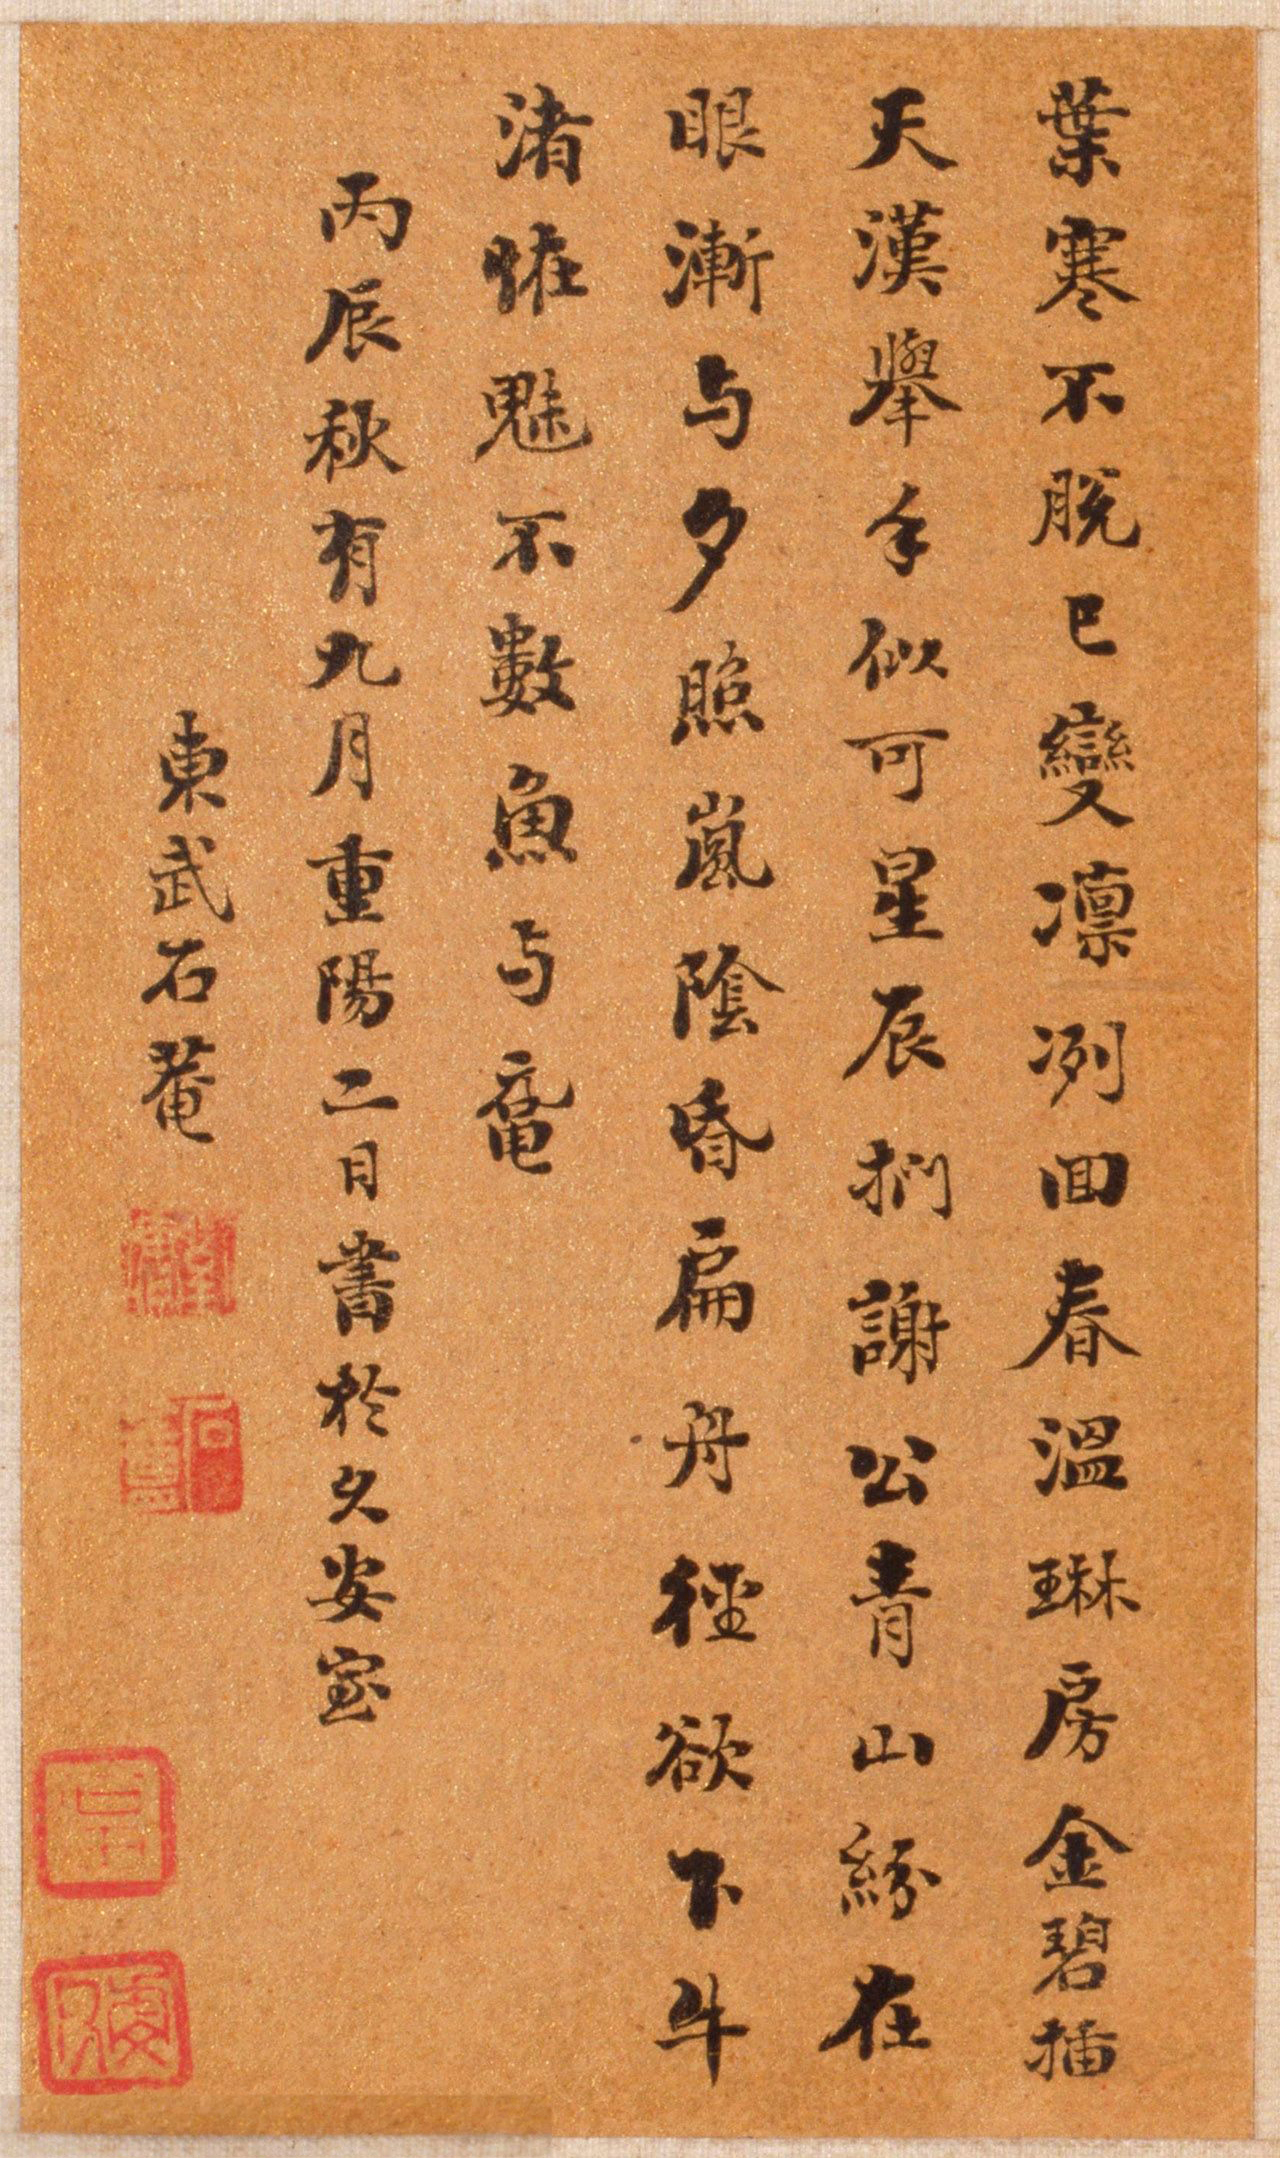 葉寒不脱已變凛冽回春溫琳房金碧插
天漢擧手似可星辰捫謝公青山紛在
眼漸与夕照嵐陰昏扁舟徑欲下牛
渚恠魅不數魚与黿
丙辰秋有九月重陽二日書於久安室
東武石菴